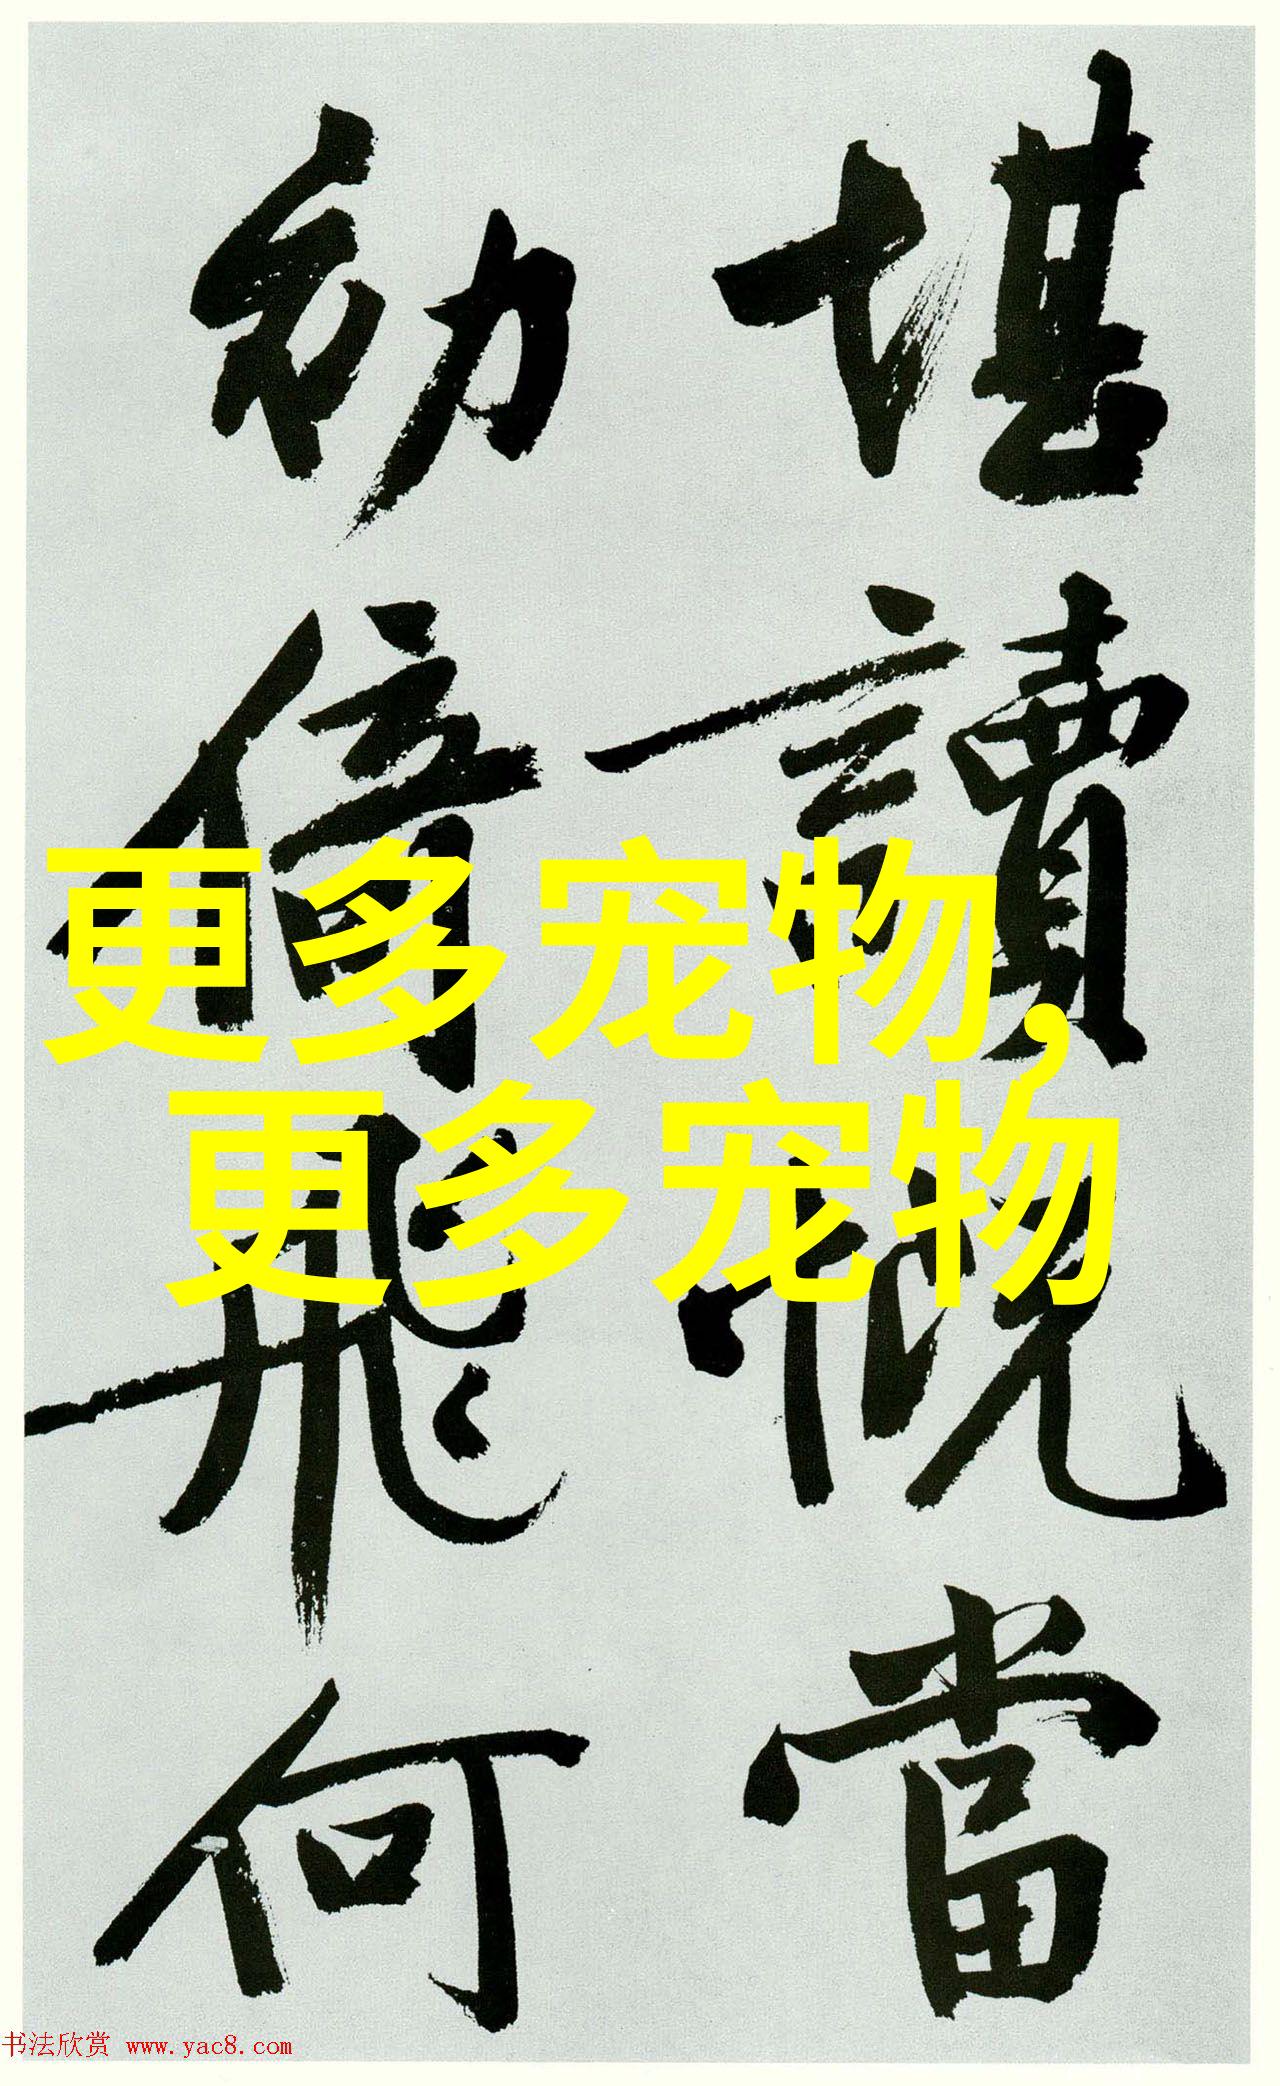 堪讀慨當
初倚飛何
更多宠物,
更多宠物
书法欣赏 www.yac8.com